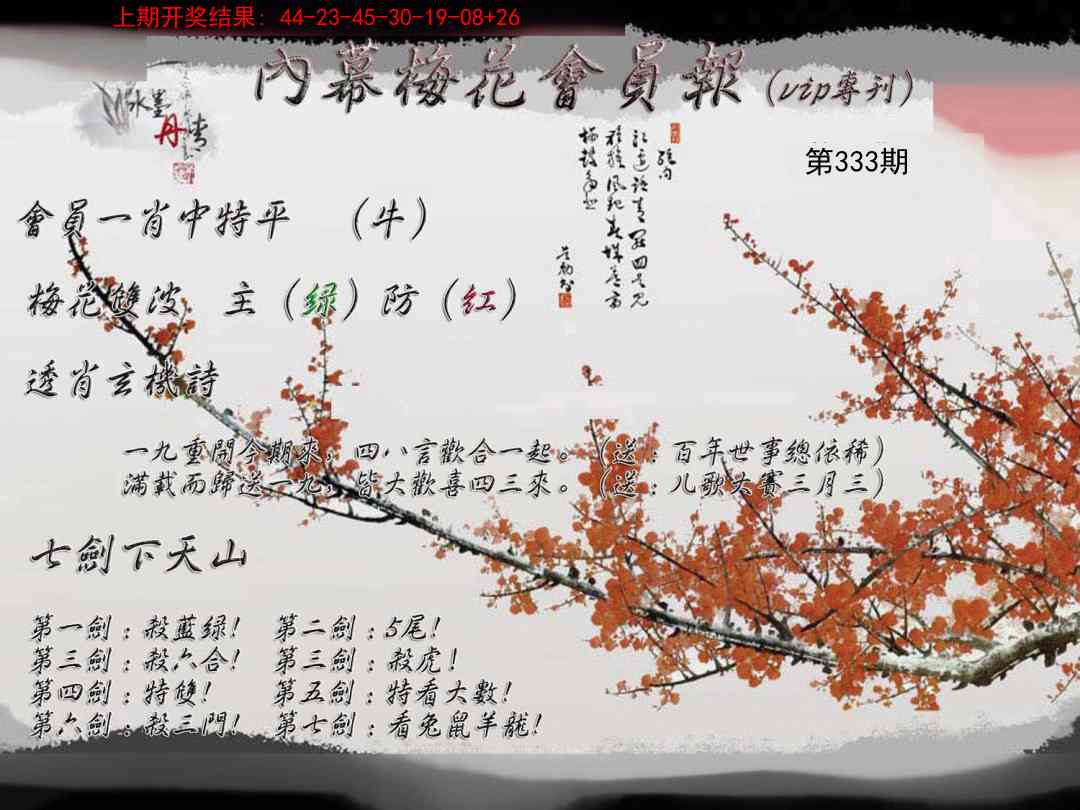 上期开奖结果: 44-23-45-30-19-08+26
內幕梅花會員報(vip專刊)
水墨丹青
第333期
會員一肖中特平 (牛)
梅花雙波 主(绿)防(红)
透肖玄機詩
一九重開今期來,四八言歡合一起。(送:百年世事總依稀)
滿載而歸送一九,皆大歡喜四三來。(送:儿歌大賽三月三)
七劍下天山
第一劍:殺藍绿! 第二劍:5尾!
第三劍:殺六合! 第三劍:殺虎!
第四劍:特雙! 第五劍:特看大數!
第六劍:殺三門! 第七劍:看兔鼠羊龍!